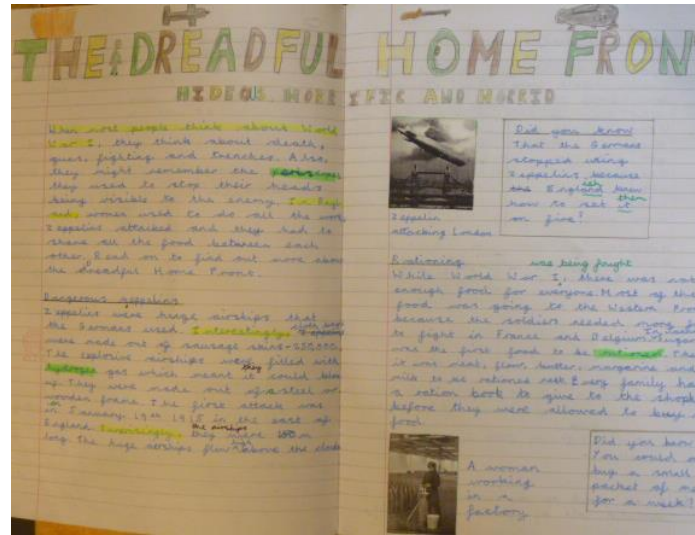 THE DREADFUL HOME FRON
HIDEOUS, HORRIFIC AND HORRID
When most people think about World
War I, they think about death,
guns, fighting and trenches. Also,
they might remember the
they used to stop their heads
being visible to the enemy. In Engl
and, women used to do all the work,
Zeppelins attacked and they had to
share all the food between each
other. Read on to find out more about
the dreadful Home Front.
Dangerous zeppelins
Zeppelins were huge airships that
the Germans used. Interestingly,
were made out of sausage skins-250,000.
The explosive airships were filled with
hydrogen gas which meant they it could blow
up. They were made out of a steel or
wooden frame. The first attack was
on in January 19th 1915 in the east of
England. Surprisingly, the airships they were
long. The huge airships flew high above the clouds
Zeppelin
attacking London
Did you know
That the Germans
stopped using
Zeppelins because
the England knew
how to set them it
on fire?
Rationing
was being fought
While World War I, there was not
enough food for everyone. Most of the
food was going to the Western Front
because the soldiers needed
to fight in France and Belgium. Sugar
was the first food to be rationed.
it was meat, flour, butter, margarine and
milk to be rationed next. Every family had
a ration book to give to the shop
before they were allowed to buy
food.
A woman
working
in a
factory
Did you know
You could
buy a small
packet of
for a week?